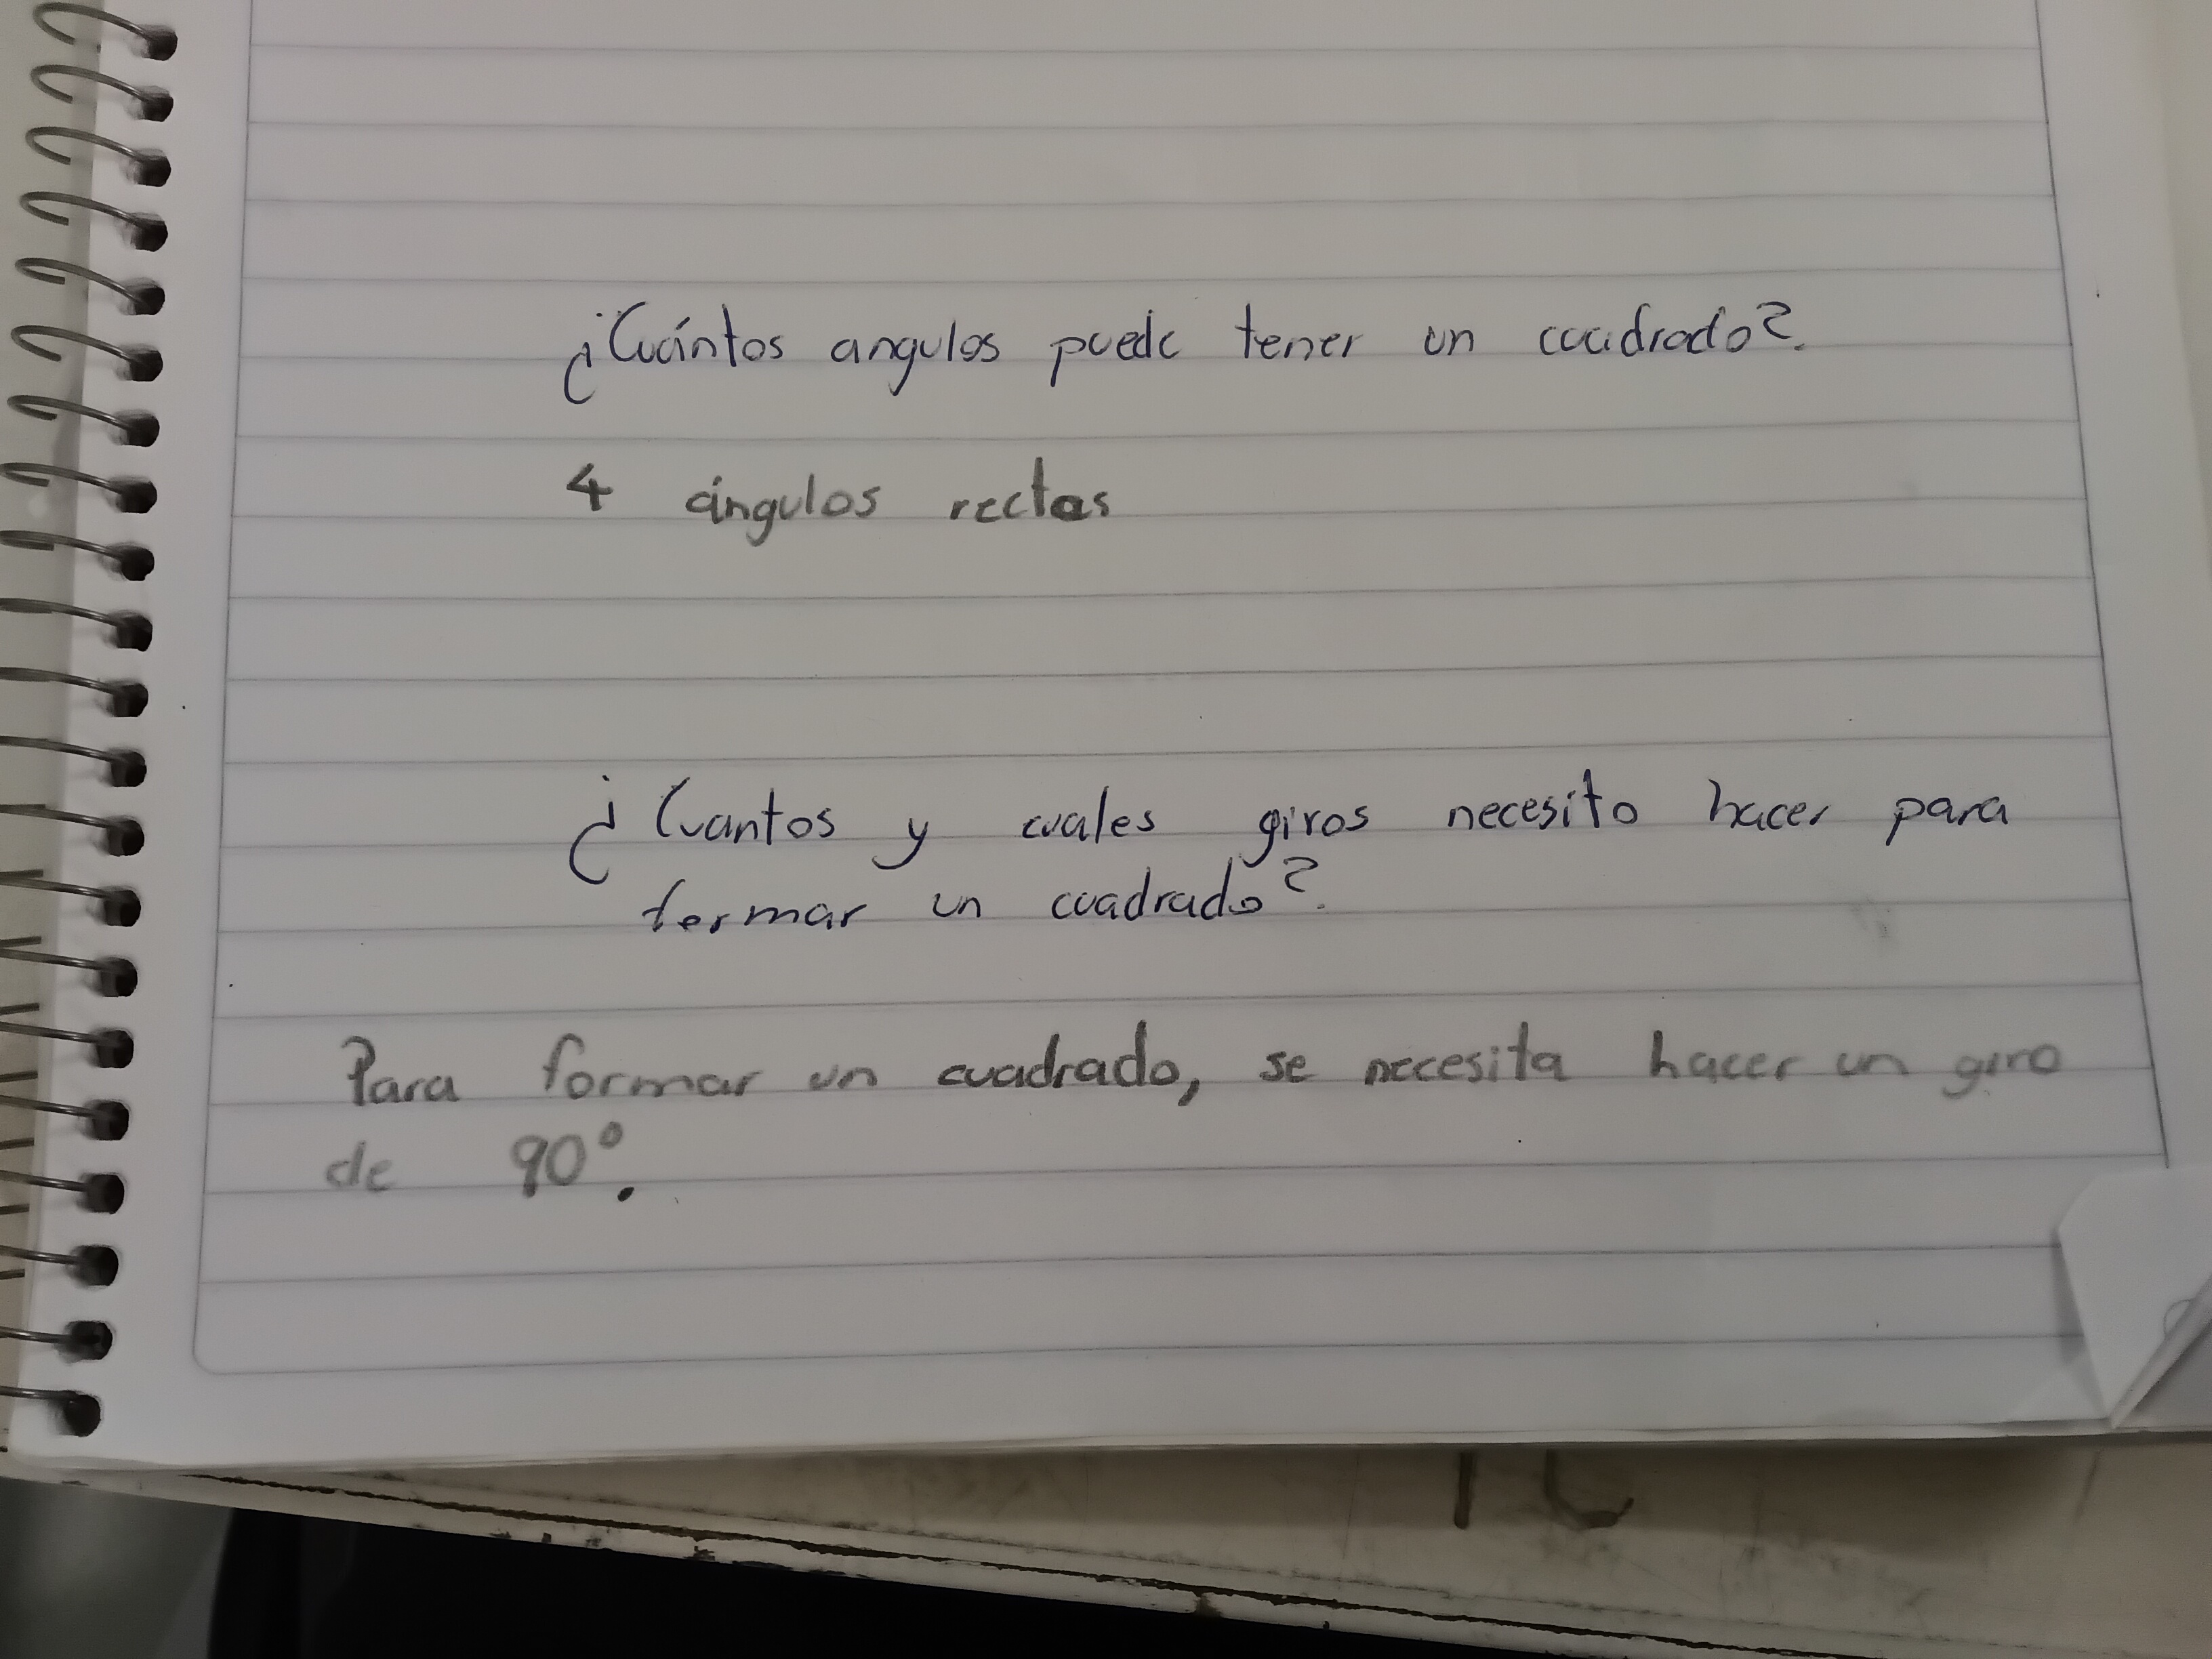 ¿Cuántos angulos puede tener un cuadrado?
4 ángulos rectos
¿Cuantos y cuales giros necesito hacer para
formar un cuadrado?
Para formar un cuadrado, se necesita hacer un giro
de 90°.